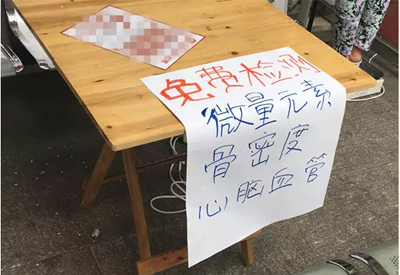 免费检测
微量元素
骨密度
心脑血管